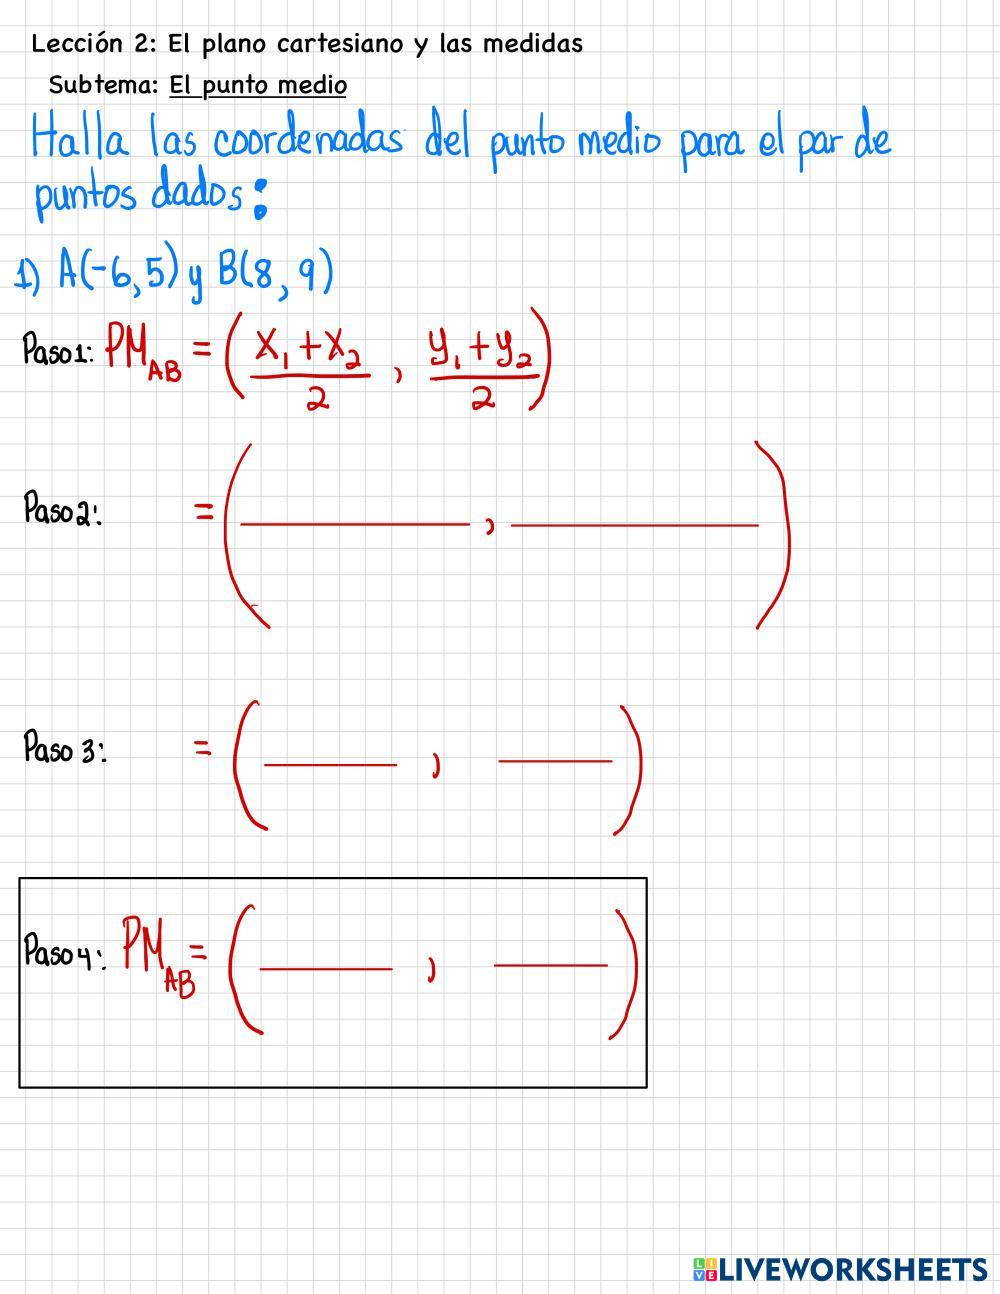 Lección 2: El plano cartesiano y las medidas
Subtema: El punto medio
Halla las coordenadas del punto medio para el par de
puntos dados:
1) A(-6,5) y B(8, 9)
Paso1: PM_AB = (x₁+x₂/2, y₁+y₂/2)
Paso2: = ( , )
Paso 3: = ( , )
Paso4: PM_AB = ( , )
LIVE LIVEWORKSHEETS